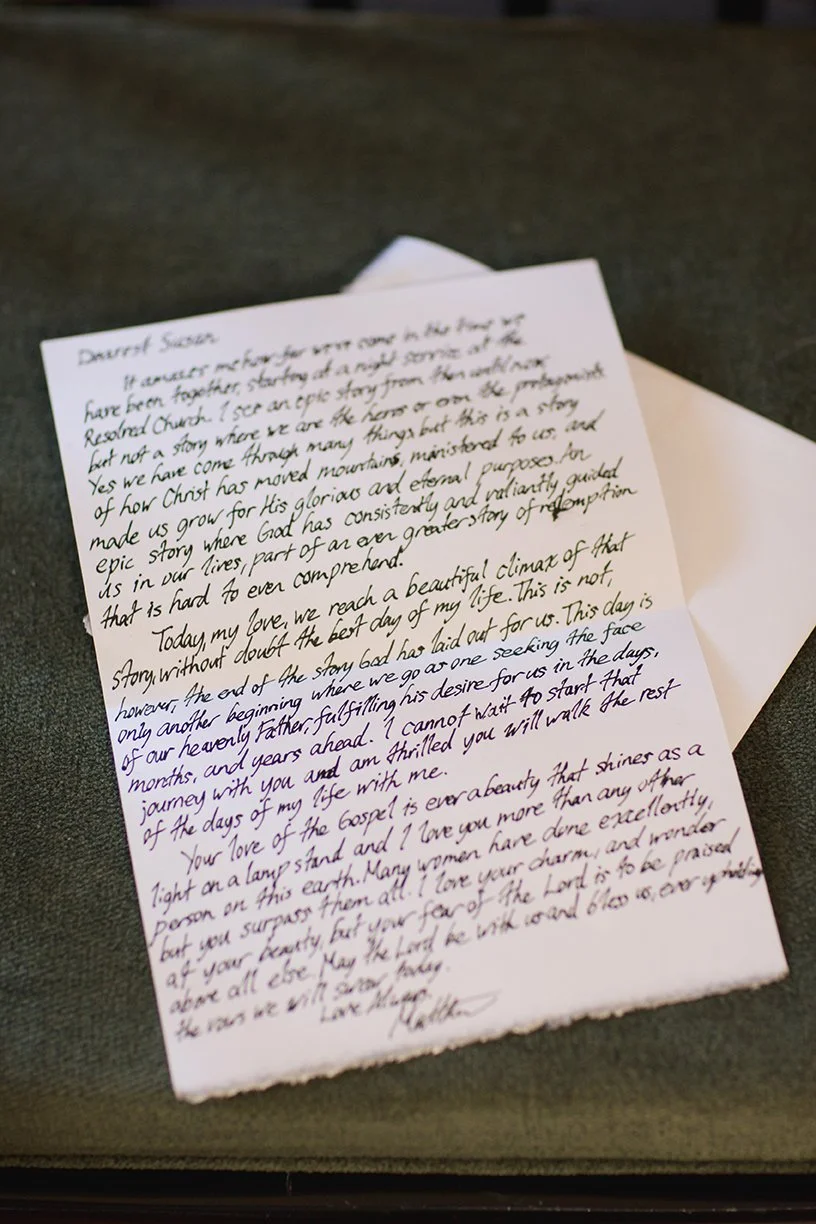 Dearest Susan
It amazes me how far we've come in the time we
have been together, starting at a night service at the
Resolved Church. I see an epic story from then until now
but not a story where we are the heros or even the protagonists
Yes we have come through many things, but this is a story
of how Christ has moved mountains, ministered to us, and
made us grow for His glorious and eternal purposes. An
epic story where God has consistently and valiantly guided
us in our lives, part of an even greater story of redemption
that is hard to even comprehend.
Today, my love, we reach a beautiful climax of that
story, without doubt the best day of my life. This is not,
however, the end of the story God has laid out for us. This day is
only another beginning where we go as one seeking the face
of our heavenly Father, fulfilling his desire for us in the days,
months, and years ahead. I cannot wait to start that
journey with you and am thrilled you will walk the rest
of the days of my life with me.
Your love of the Gospel is ever a beauty that shines as a
light on a lamp stand and I love you more than any other
person on this earth. Many women have done excellently,
but you surpass them all. I love your charm, and wonder
at your beauty, but your fear of the Lord is to be praised
above all else. May the Lord be with us and bless us, ever upholding
the vows we will swear today.
Love Always,
Matthew